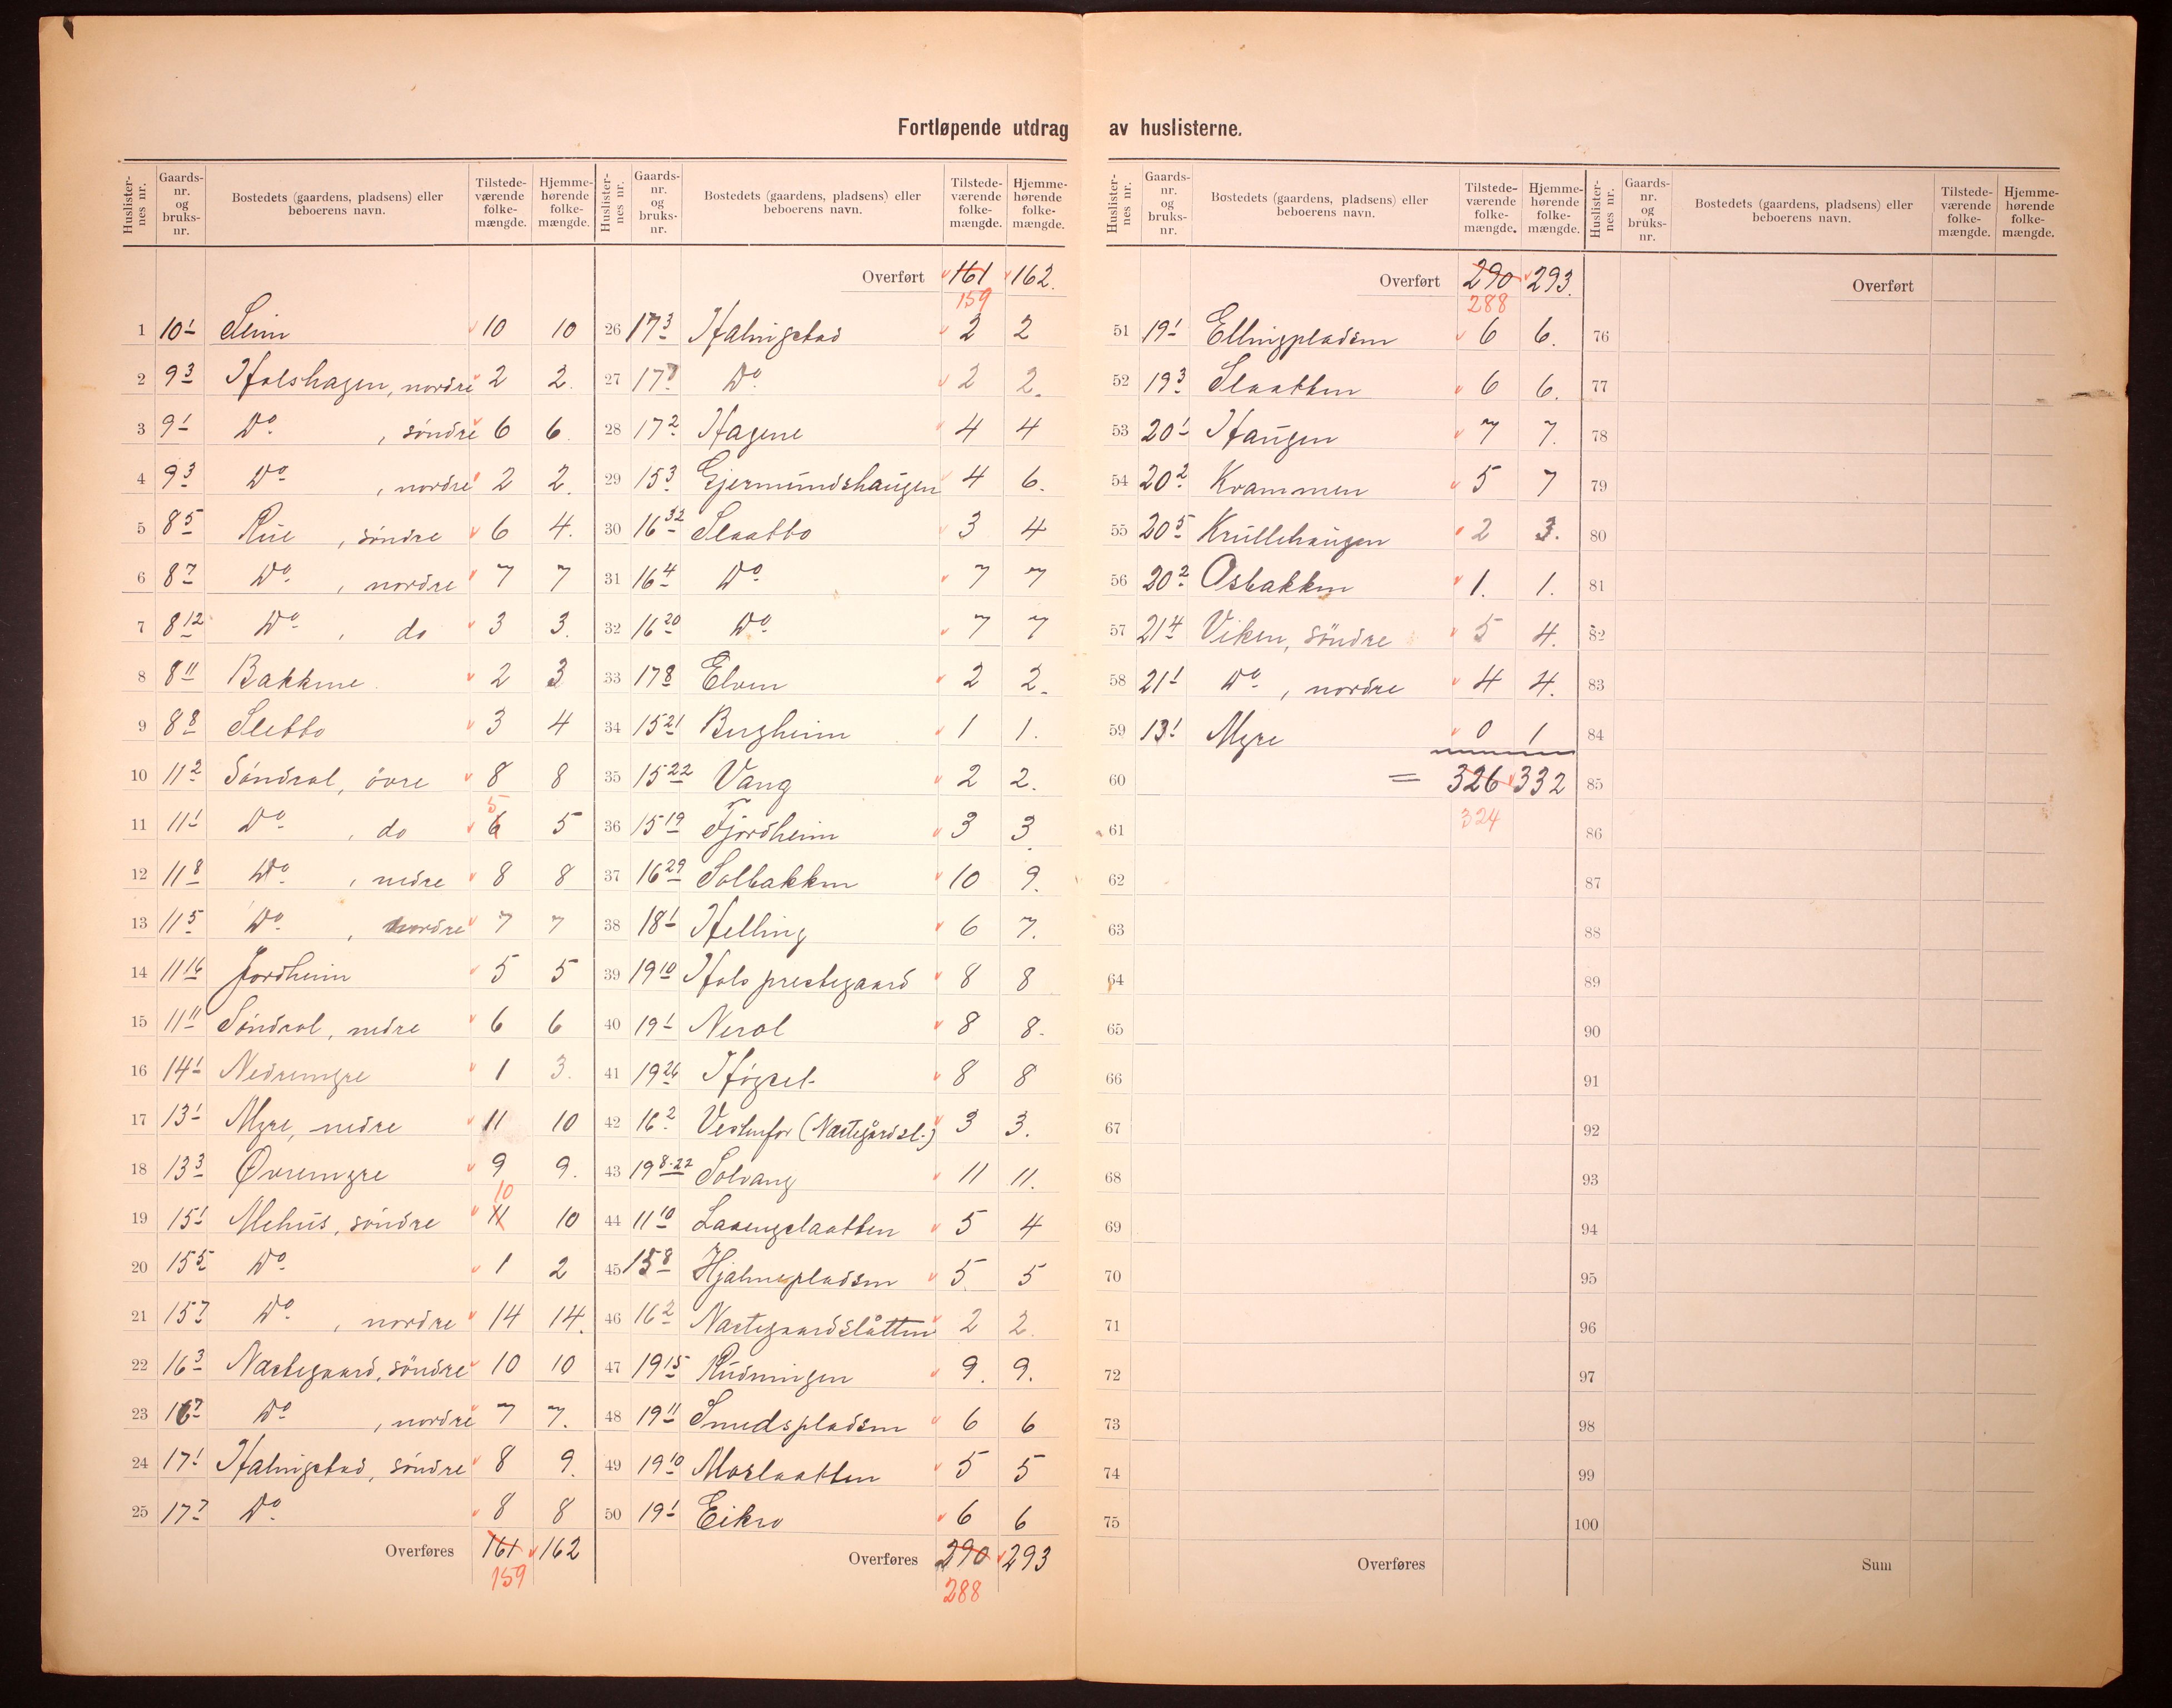 Fortløpende utdrag av huslisterne.
Huslisternes nr. Gaards-nr. og bruks-nr. Bostedets (gaardens, pladsens) eller beboerens navn. Tilstedeværende folkemængde. Hjemmehørende folkemængde.
1 10 1 Slim 10 10
2 9 3 Holshagen, nordre 2 2.
3 9 1 Do , søndre 6 6.
4 9 3 Do , nordre 2 2.
5 8 5 Rue , søndre 6 4.
6 8 7 Do , nordre 7 7
7 8 12 Do , do 3 3.
8 8 11 Bakkene 2 3
9 8 8 Sletto 3 4
10 11 2 Søndrol, øvre 8 8
11 11 1 Do , do 6 5 5
12 11 8 Do , nedre 8 8
13 11 5 Do , nordre 7 7
14 11 16 Jordheim 5 5
15 11 11 Søndrol, nedre 6 6
16 14 1 Nedremyre 1 3.
17 13 1 Myre, nedre 11 10
18 13 3 Øvremyre 9 9.
19 15 1 Mehus, søndre 11 10 10
20 15 5 Do 1 2
21 15 7 Do , nordre 14 14.
22 16 3 Nartegaard, søndre 10 10
23 16 7 Do , nordre 7 7.
24 17 1 Halingstad, søndre 8 9.
25 17 7 Do 8 8
Overføres 161 162
159
Huslisternes nr. Gaards-nr. og bruks-nr. Bostedets (gaardens, pladsens) eller beboerens navn. Tilstedeværende folkemængde. Hjemmehørende folkemængde.
Overført 161 162.
159
26 17 3 Halingstad 2 2
27 17 7 Do 2 2.
28 17 2 Hagene 4 4
29 15 3 Gjermundshaugen 4 6.
30 16 32 Slaatto 3 4
31 16 4 Do 7 7
32 16 20 Do 7 7
33 17 8 Elven 2 2.
34 15 21 Bergheim 1 1.
35 15 22 Vang 2 2.
36 15 19 Fjordheim 3 3.
37 16 29 Solbakken 10 9.
38 18 1 Helling 6 7.
39 19 10 Hols prestegaard 8 8
40 19 1 Nerol 8 8.
41 19 26 Høgset 8 8
42 16 2 Vestenfor (Nartegårdsl.) 3 3.
43 19 8.22 Solvang 11 11.
44 11 10 Lavengslaatten 5 4
45 15 8 Hjalmepladsen 5. 5
46 16 2 Nartegaardslåtten 2 2.
47 19 15 Rudningen 9. 9.
48 19 11 Smedspladsen 6 6
49 19 10 Moslaatten 5 5
50 19 1 Eikro 6 6
Overføres 290 293
288
Huslisternes nr. Gaards-nr. og bruks-nr. Bostedets (gaardens, pladsens) eller beboerens navn. Tilstedeværende folkemængde. Hjemmehørende folkemængde.
Overført 290 293.
288
51 19 1 Ellingpladsen 6 6.
52 19 3 Slaatten 6 6.
53 20 1 Haugen 7 7.
54 20 2 Krammen 5 7
55 20 5 Krullehaugen 2 3.
56 20 2 Osbakken 1. 1.
57 21 4 Viken, søndre 5 4.
58 21 1 Do , nordre 4 4.
59 13 1 Myre 0 1
60 = 326 332
61 324
62
63
64
65
66
67
68
69
70
71
72
73
74
75
Overføres
Huslisternes nr. Gaards-nr. og bruks-nr. Bostedets (gaardens, pladsens) eller beboerens navn. Tilstedeværende folkemængde. Hjemmehørende folkemængde.
Overført
76
77
78
79
80
81
82
83
84
85
86
87
88
89
90
91
92
93
94
95
96
97
98
99
100
Sum